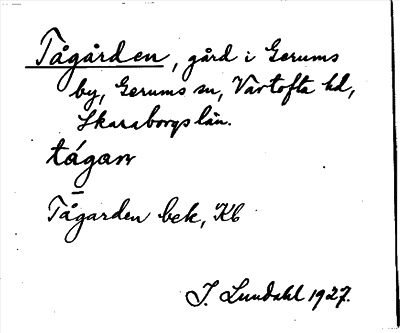 Tågården, gård i Gerums
by, Gerums sn, Vartofta hd,
Skaraborgs län.
tágaṉ
Tågarden bek, Kb
I. Lundahl 1927.